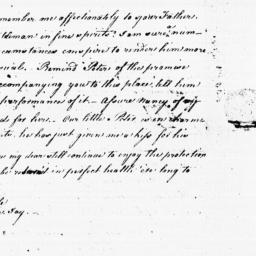 remember me affectionately to your Father.
man in fine spirits. I am sure num-
cumstances conspire to render him more
cial. Remind Peter of his promise
accompanying you to this place, tell him
performance of it - Assure Nancy of my
for here. Our little Peter is en charme
he has just given me a kiss for his
my dear still continue to enjoy the protection
be in perfect health ere long to
Jay.